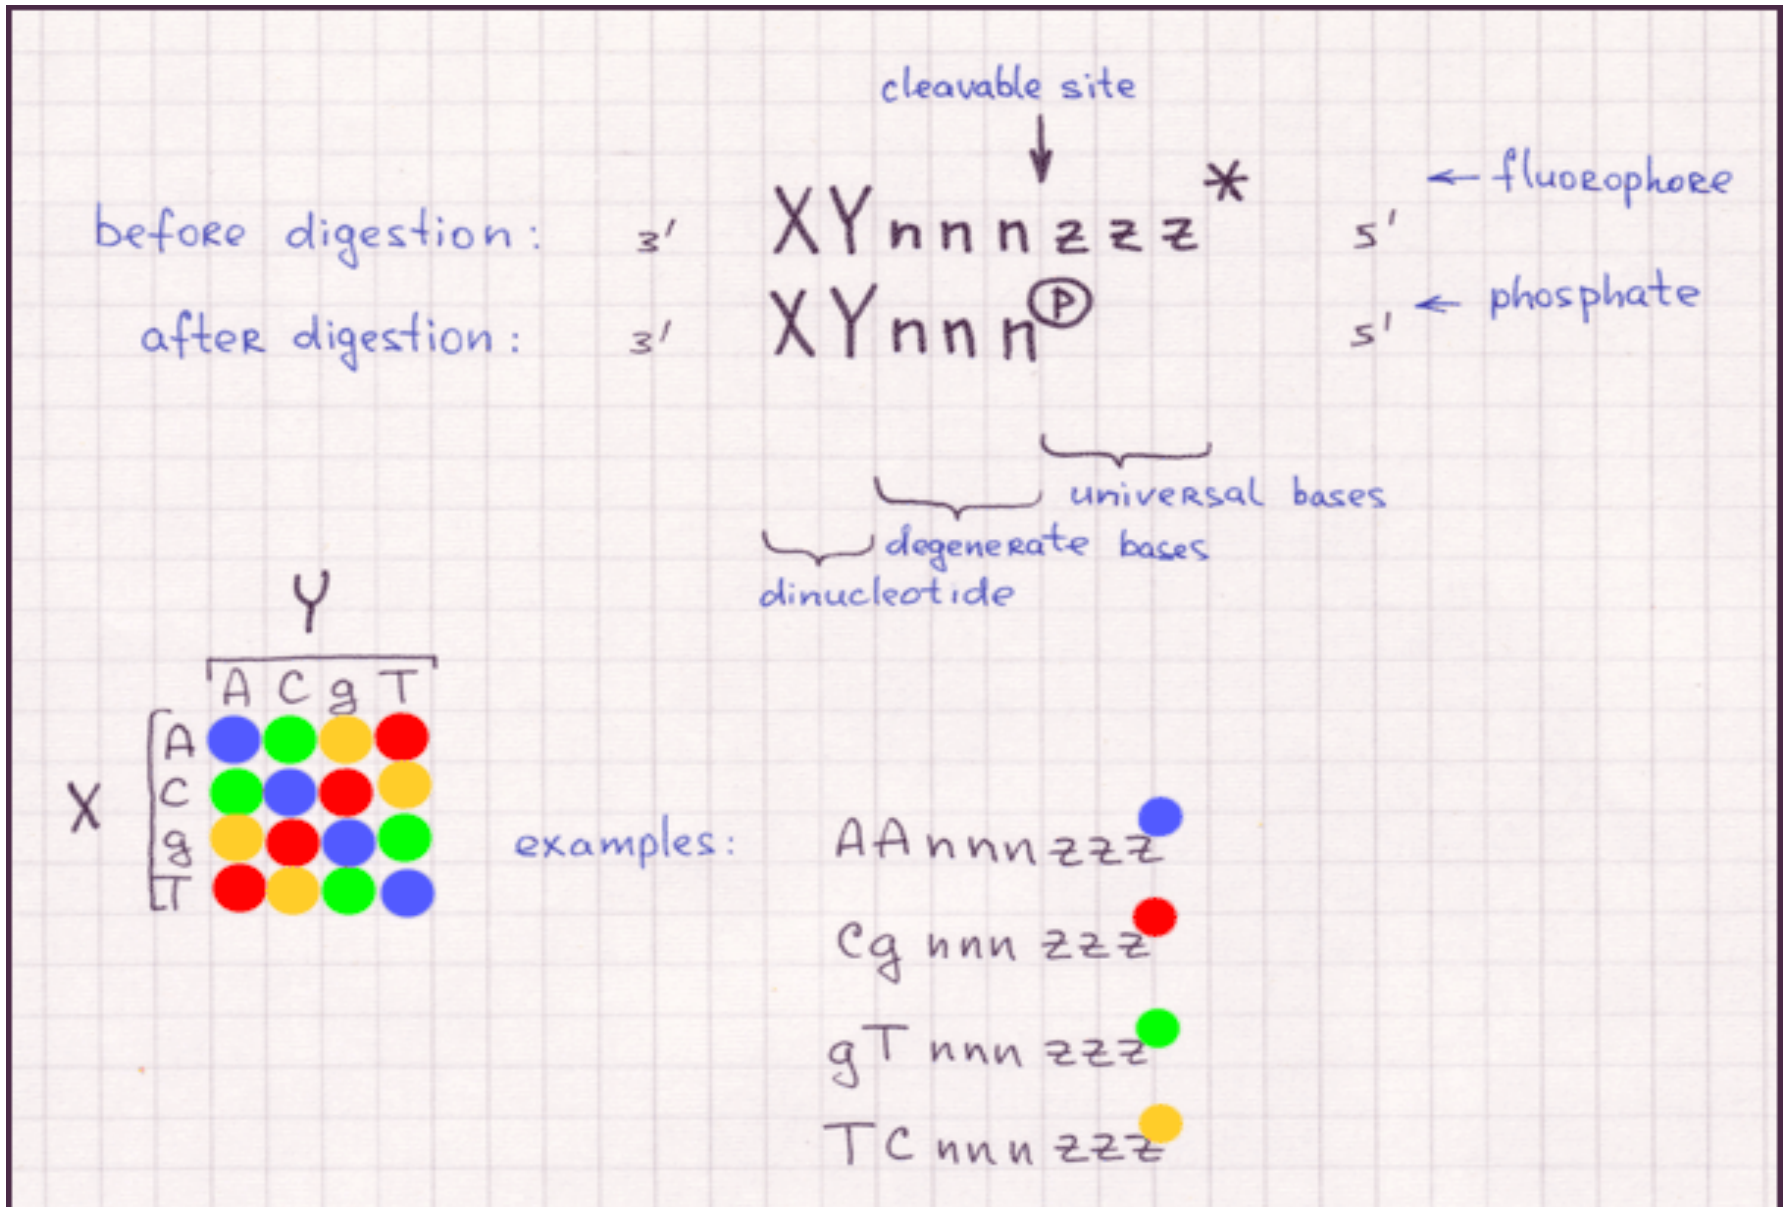 cleavable site
before digestion: 3' XYnnnzzz* 5' ← fluorophore
after digestion: 3' XYnnnⓅ 5' ← phosphate
universal bases
degenerate bases
dinucleotide
Y
A C g T
X
A
C
g
T
examples:
AAnnnzzz
Cg nnn zzz
gT nnn zzz
TC nnn zzz